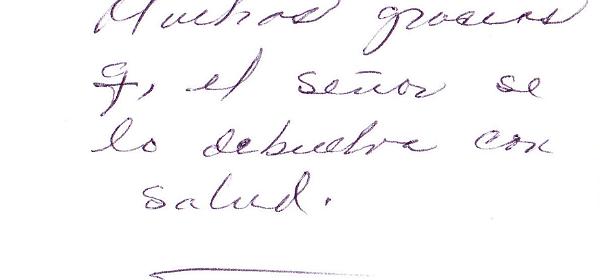 Muchas gracias
q, el señor se
lo debuelva con
salud.